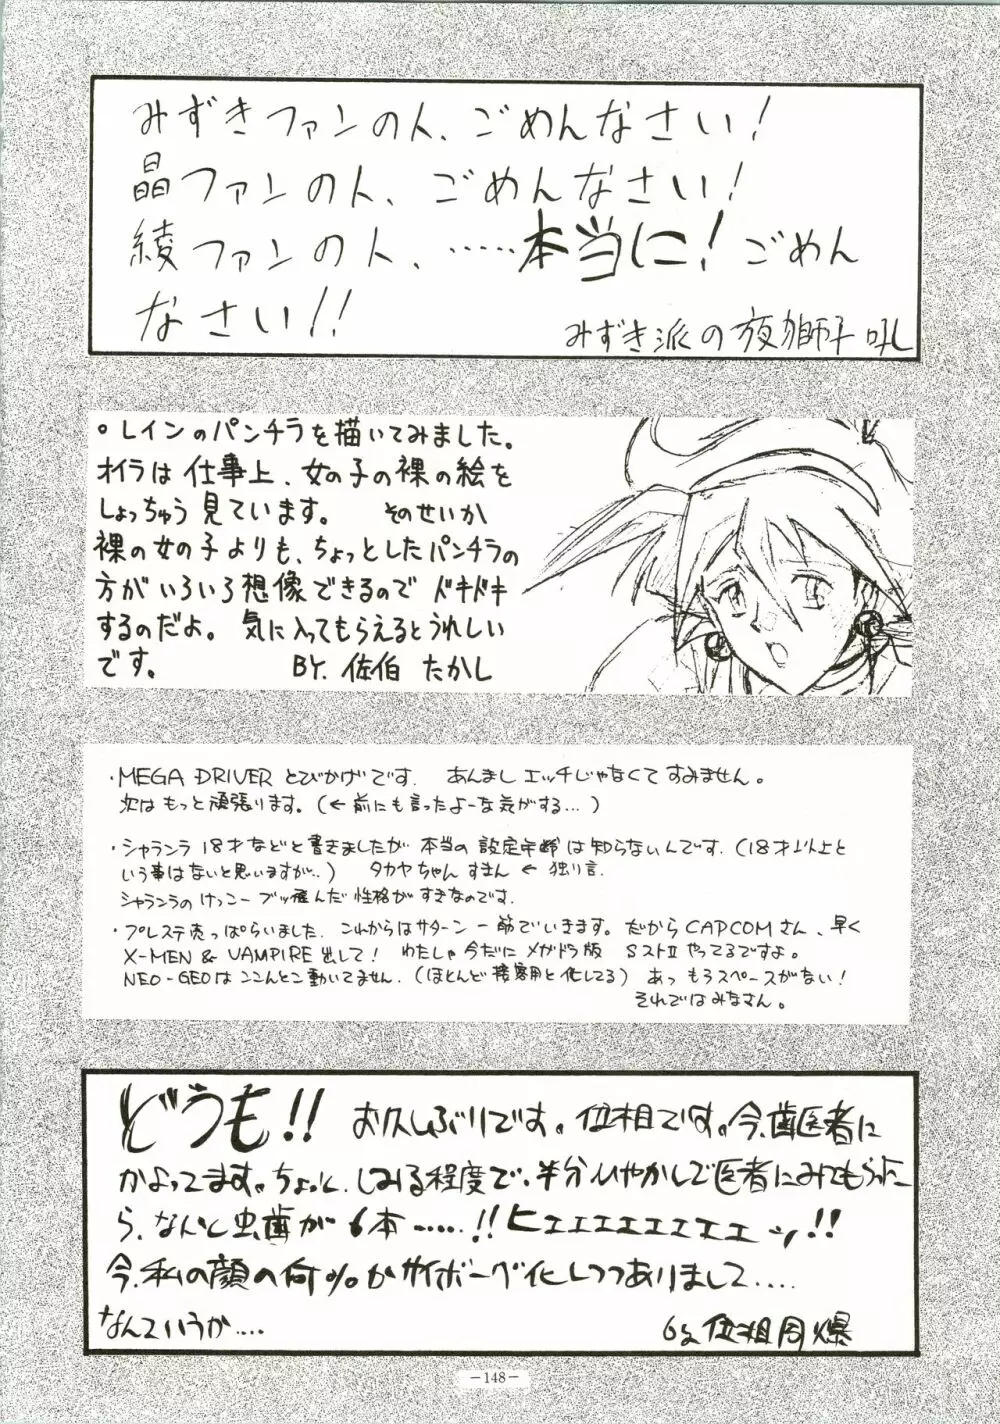 みずきファンの人、ごめんなさい!
晶ファンの人、ごめんなさい!
綾ファンの人、……本当に!ごめん
なさい!!
みずき派の夜獅子吼
○レインのパンチラを描いてみました。
オイラは仕事上、女の子の裸の絵を
しょっちゅう見ています。 そのせいか
裸の女の子よりも、ちょっとしたパンチラの
方がいろいろ想像できるので ドキドキ
するのだよ。気に入ってもらえるとうれしい
です。 BY. 佐伯 たかし
・MEGA DRIVER とびかげです. あんまし エッチじゃなくて すみません。
次は もっと頑張ります。(← 前にも言ったよーな気がする…)
・シャランラ 18才などと書きましたが 本当の設定年齢は知らないんです.(18才以上と
いう事はないと思いますが‥) タカヤちゃん すまん ← 独り言.
シャランラの けっこー ブッ飛んだ 性格が すきなのです.
・プレステ売っぱらいました. これからはサターン一筋でいきます。だから CAPCOMさん、早く
X-MEN & VAMPIRE 出して! わたしゃ 今だに メガドラ版 SストII やってるですよ。
NEO-GEOは ここんとこ動いてません.(ほとんど 接客用と化してる) あっ もうスペースがない!
それではみなさん。
どうも!! お久しぶりです。位相です。今、歯医者に
かよってます。ちょっと、しみる程度で、半分ひやかしで医者にみてもらった
ら、なんと虫歯が6本……!!ヒエエエエエエエエッ!!
今、私の顔の何%かサイボーグ化しつつありまして....
なんていうか.... by 位相同爆
-148-